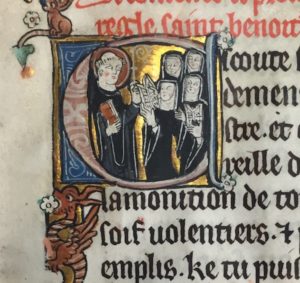 reḡle saint benoit
scoute
demens
stre. et
reille d
lamonition de to
soif uolentiers. ⁊
emplis. ke tu puis